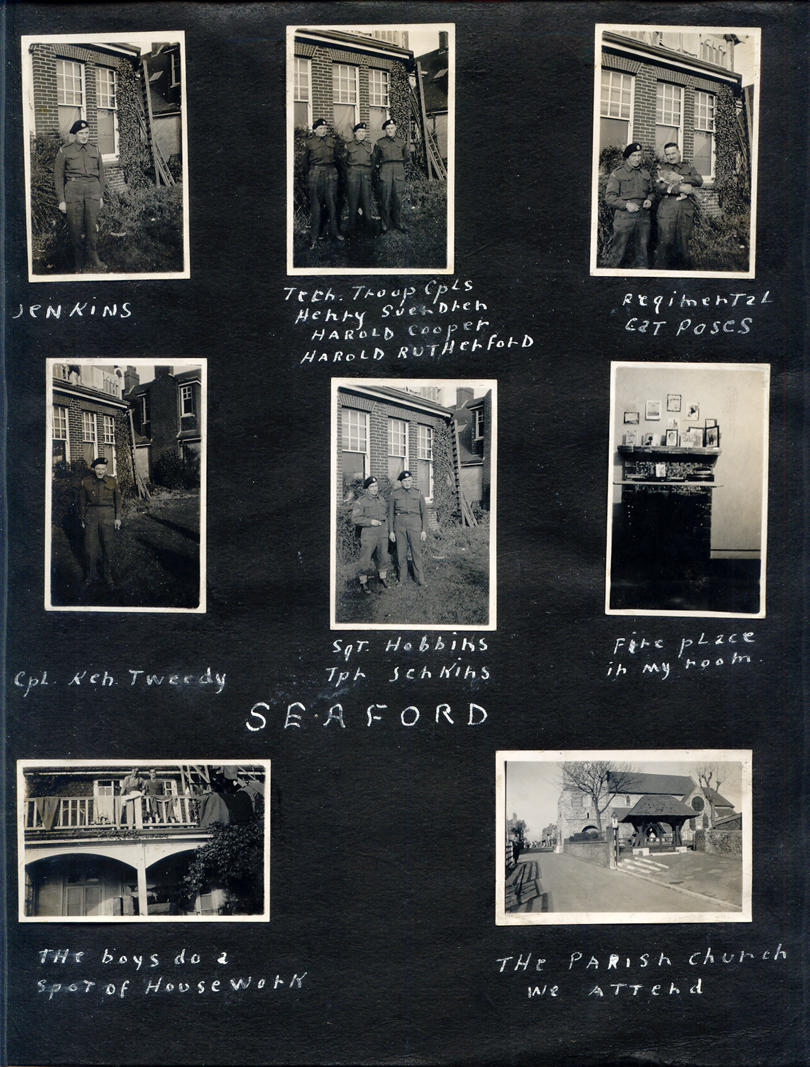 JENKINS
Tech. Troop Cpls
Henry Suendren
HAROLD Cooper
HAROLD RUTHerForD
RegimenTaL
CaT POSES
Cpl. Ken. Tweedy
SgT. Hobbins
Tpr Jenkins
Fire place
in my room.
SEAFORD
THe boys do a
SpoT of HouseWorK
THe PARish Church
We ATTend